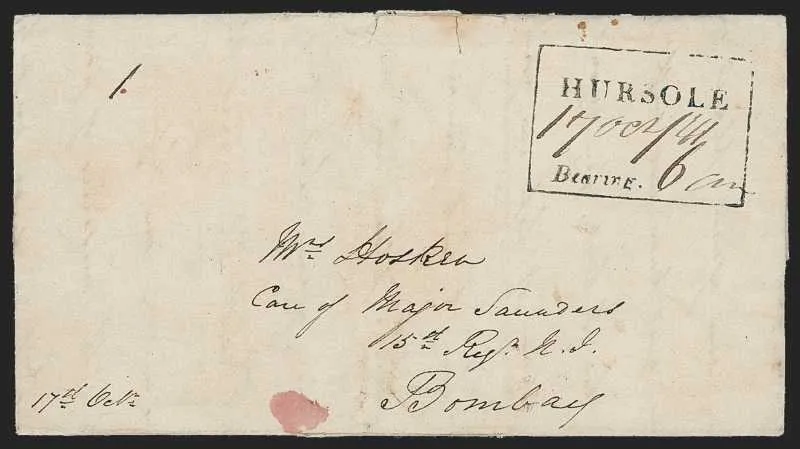 1.
HURSOLE
17 Oct/41
Bearing. 6 am
Mrs Hosken
Care of Major Saunders
15th Regt. N. I.
Bombay
17th Octr